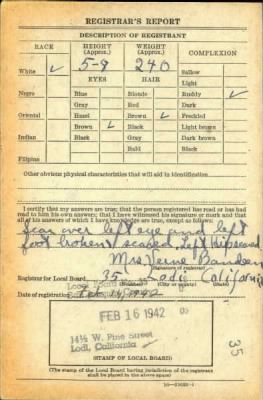 REGISTRAR'S REPORT
DESCRIPTION OF REGISTRANT
RACE HEIGHT (Approx.) WEIGHT (Approx.) COMPLEXION
5-9 240
White ✓ Sallow
EYES HAIR Light
Negro Blue Blonde Ruddy ✓
Gray Red Dark
Oriental Hazel Brown ✓ Freckled
Brown ✓ Black Light brown
Indian Black Gray Dark brown
Bald Black
Filipino
Other obvious physical characteristics that will aid in identification
I certify that my answers are true; that the person registered has read or has had
read to him his own answers; that I have witnessed his signature or mark and that
all of his answers of which I have knowledge are true, except as follows:
Scar over left eye and left
foot broken scared, Left hip scared
Mrs. Verne
(Signature of registrar)
Registrar for Local Board 35 Lodi California
(Number) (City or county) (State)
Date of registration Feb 16, 1942
FEB 16 1942
14½ W. Pine Street
Lodi, California
35
(STAMP OF LOCAL BOARD)
(The stamp of the Local Board having jurisdiction of the registrant
shall be placed in the above space)